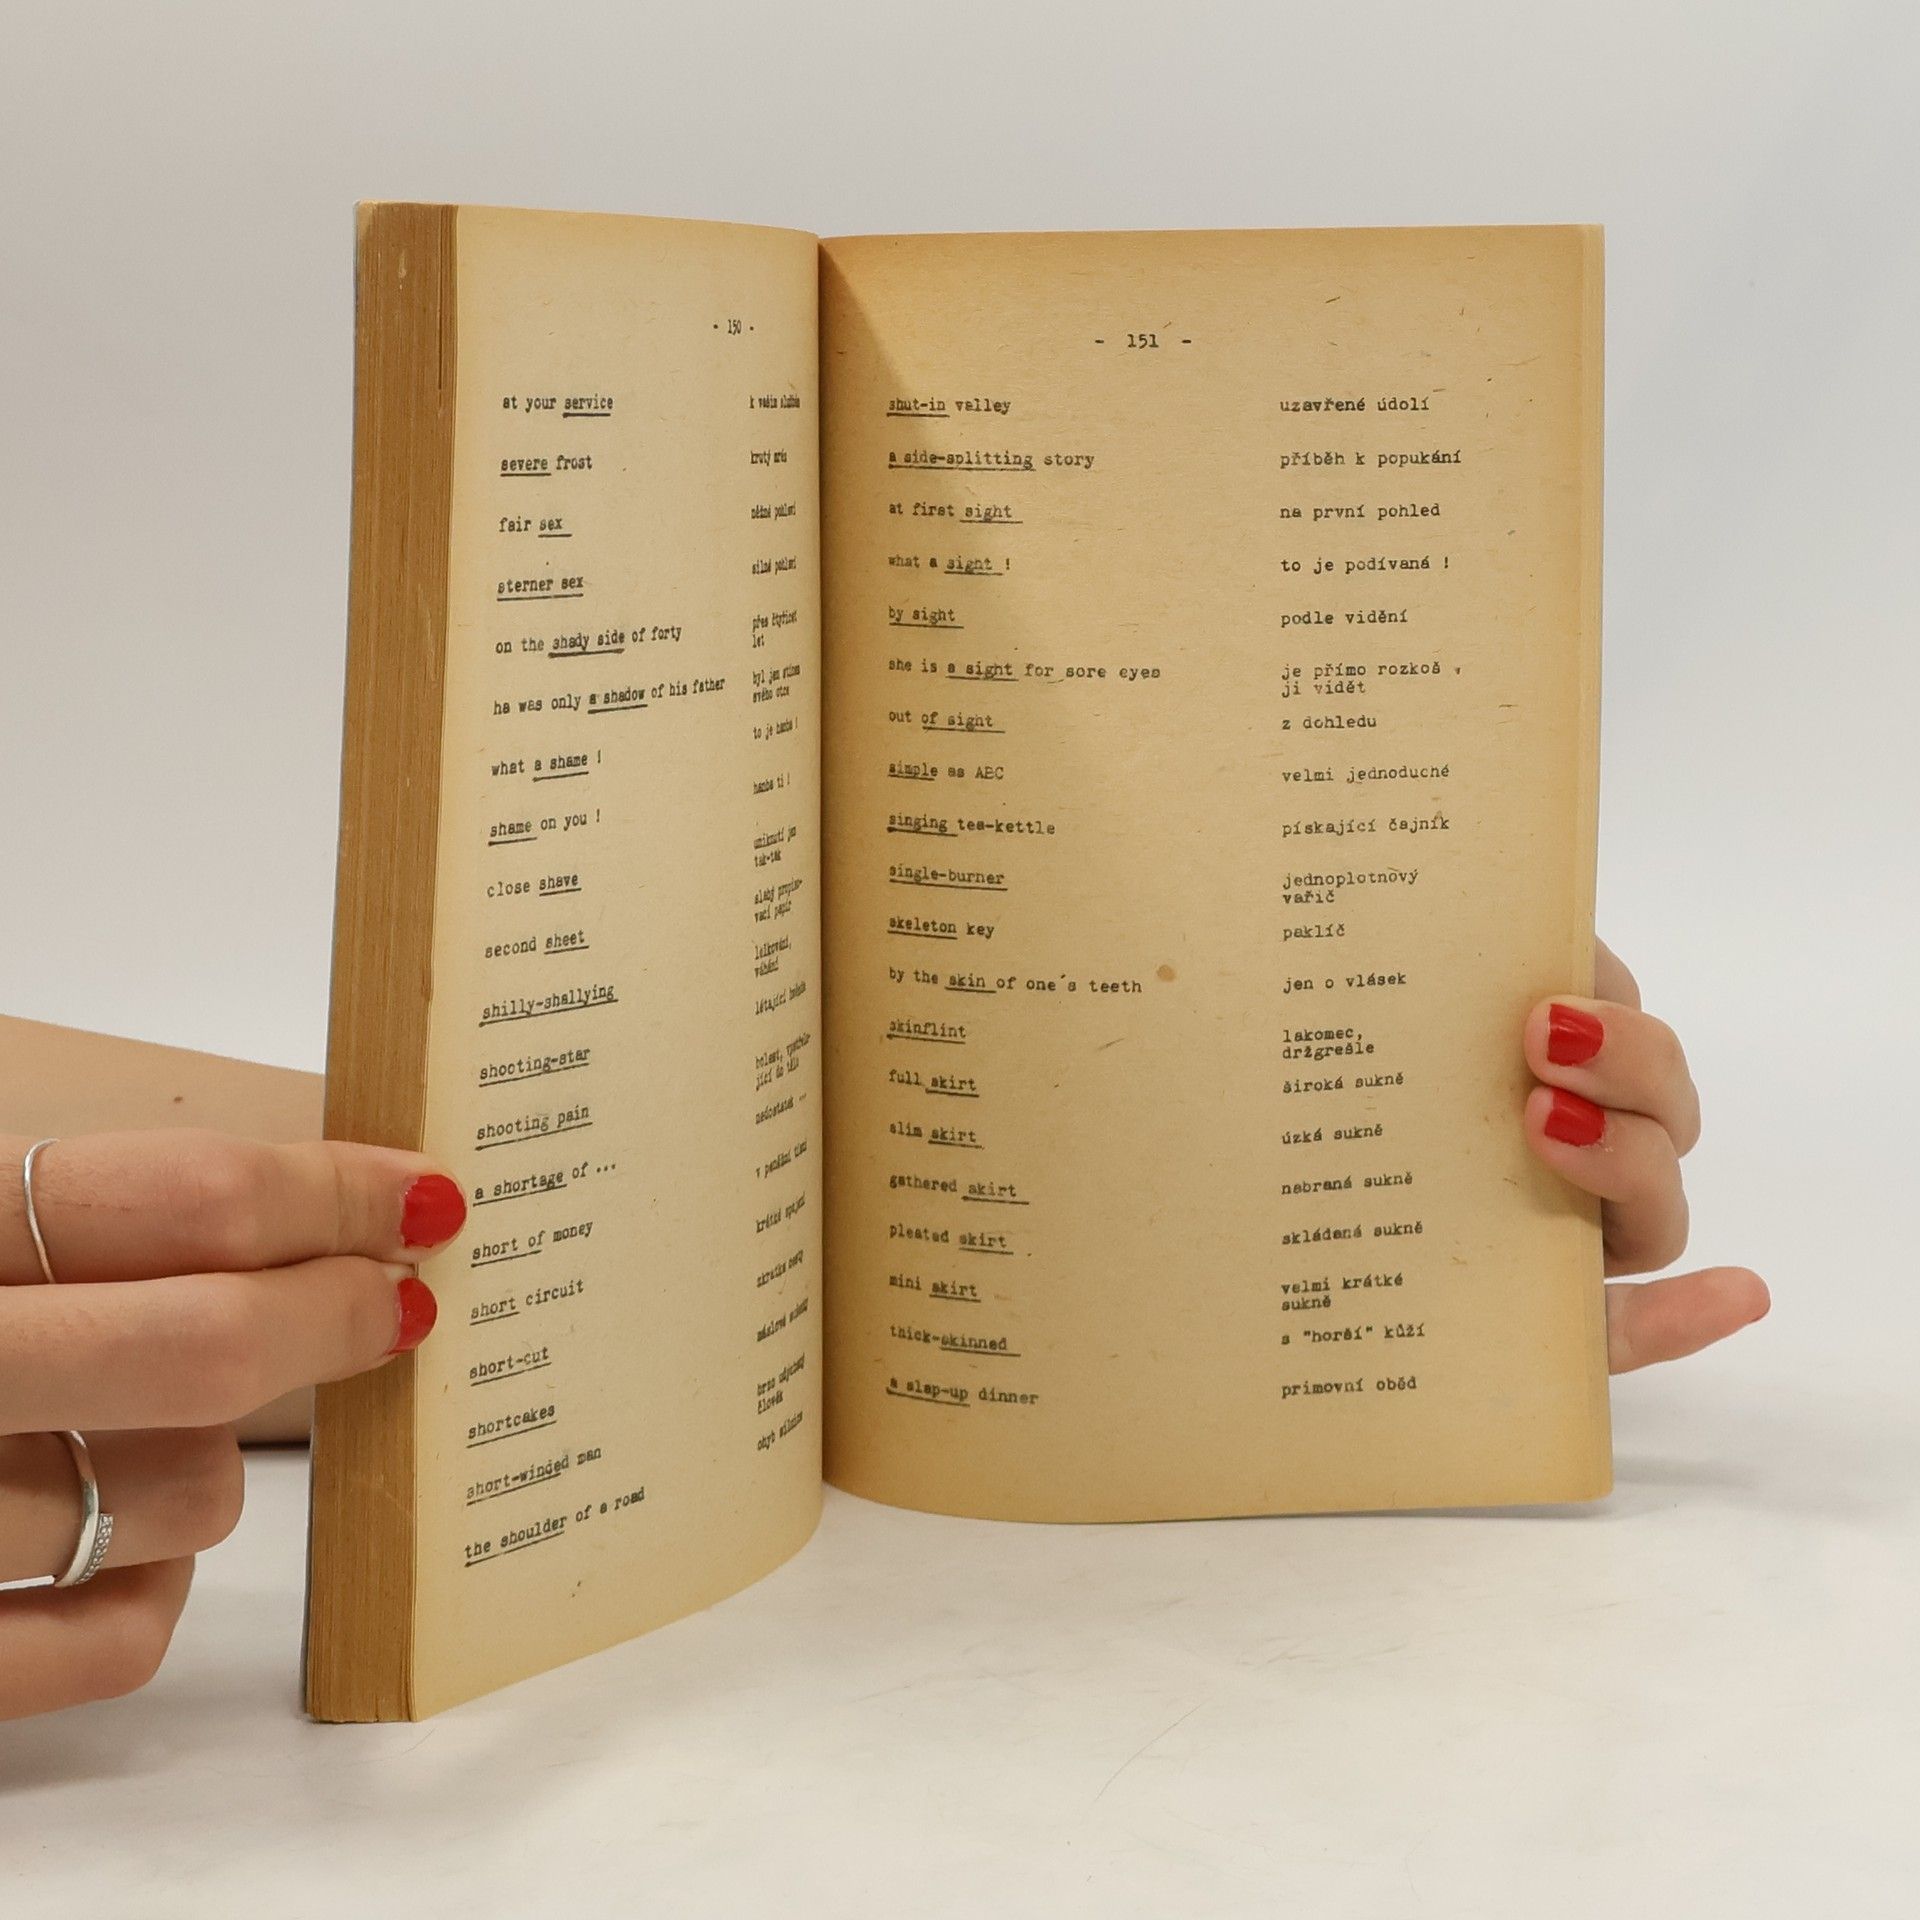 - 150 -
at your service k vašim službám
severe frost krutý mráz
fair sex něžné pohlaví
sterner sex silné pohlaví
on the shady side of forty přes čtyřicet
let
he was only a shadow of his father byl jen stínem
svého otce
what a shame ! to je hanba !
shame on you ! hanba ti !
close shave uniknutí jen
tak-tak
second sheet slabý propiso-
vací papír
shilly-shallying lelkování,
váhání
shooting-star létající hvězda
shooting pain bolest, vystřelu-
jící do těla
a shortage of ... nedostatek ...
short of money v peněžní tísni
short circuit krátké spojení
short-cut zkratka cesty
shortcakes máslové sušenky
short-winded man brzo udýchaný
člověk
the shoulder of a road ohyb silnice
- 151 -
shut-in valley uzavřené údolí
a side-splitting story příběh k popukání
at first sight na první pohled
what a sight ! to je podívaná !
by sight podle vidění
she is a sight for sore eyes je přímo rozkoš
ji vidět
out of sight z dohledu
simple as ABC velmi jednoduché
singing tea-kettle pískající čajník
single-burner jednoplotnový
vařič
skeleton key paklíč
by the skin of one´s teeth jen o vlásek
skinflint lakomec,
držgrešle
full skirt široká sukně
slim skirt úzká sukně
gathered skirt nabraná sukně
pleated skirt skládaná sukně
mini skirt velmi krátké
sukně
thick-skinned s "horší" kůží
a slap-up dinner primovní oběd